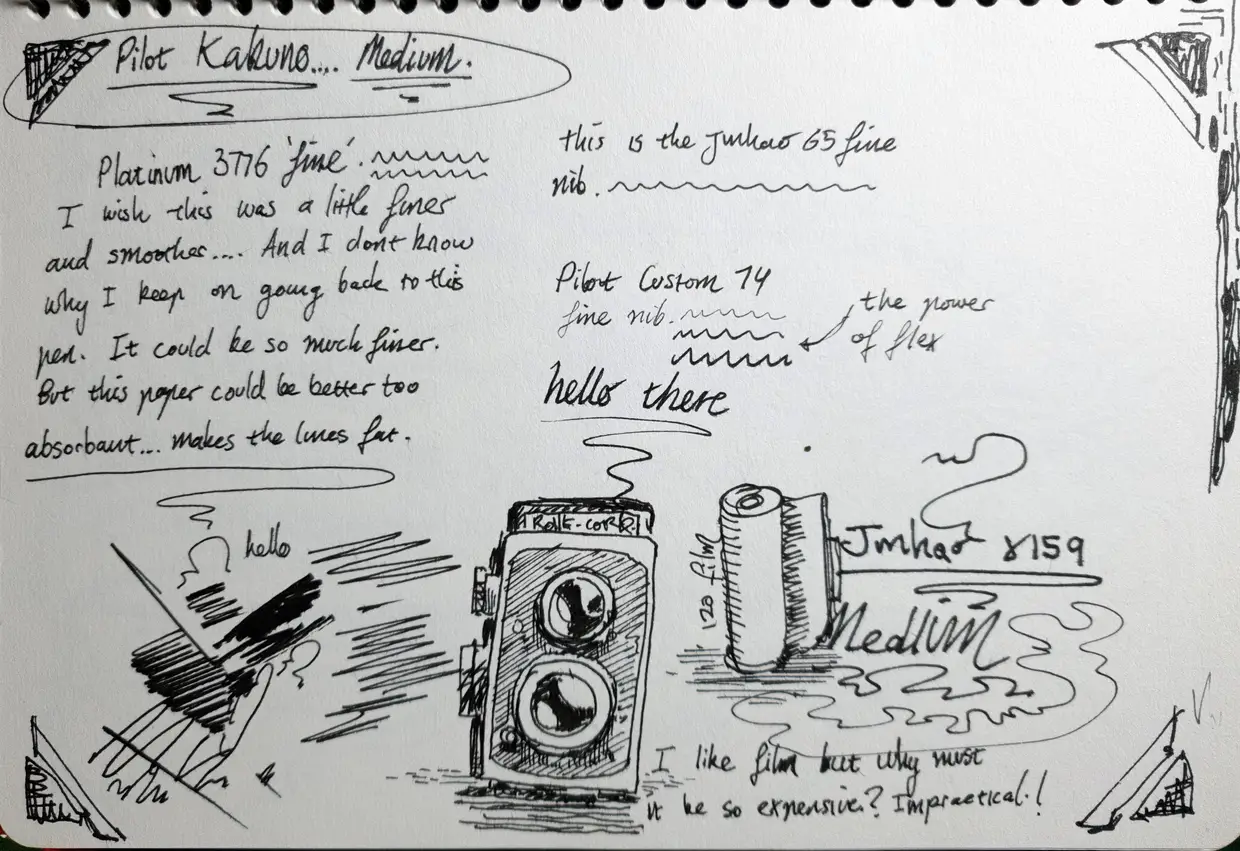 Pilot Kakuno.... Medium.
Platinum 3776 'fine'.
I wish this was a little finer
and smoother.... And I dont know
why I keep on going back to this
pen. It could be so much finer.
But this paper could be better too
absorbant... makes the lines fat.
hello
this is the Jinhao 65 fine
nib.
Pilot Custom 74
fine nib.
the power
of flex
hello there
120 film
Jinhao X159
Medium
I like film but why must
it be so expensive? Impractical!